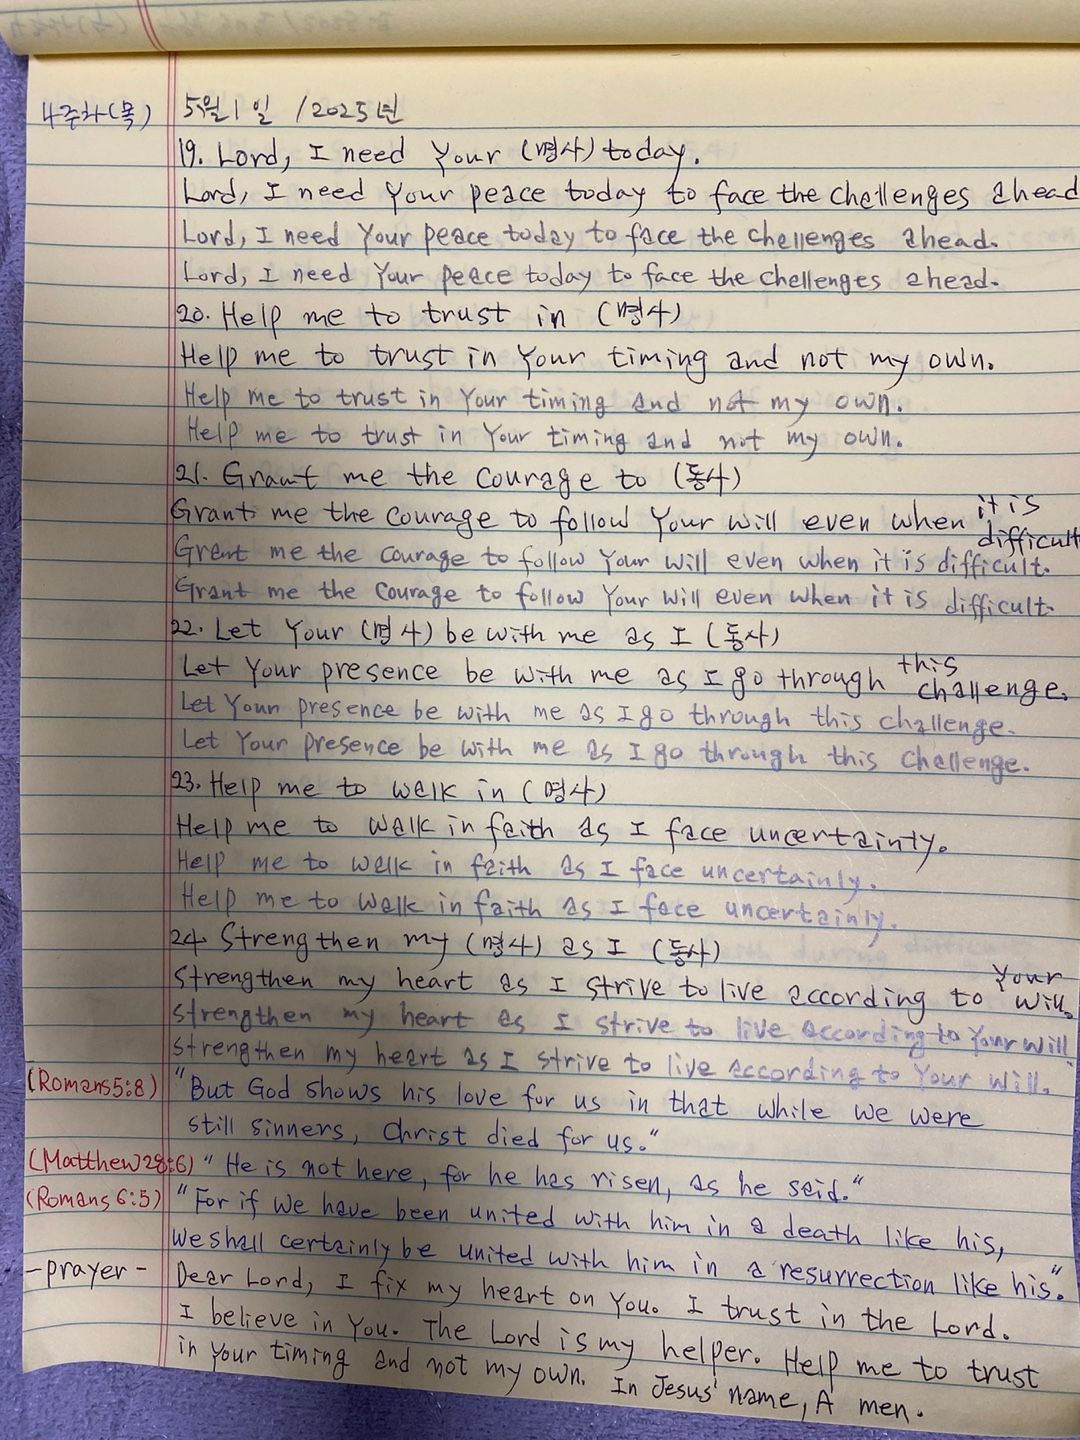 4주차(목) 5월 1일 / 2025년
19. Lord, I need Your (명사) today.
Lord, I need Your peace today to face the challenges ahead
Lord, I need Your peace today to face the challenges ahead.
Lord, I need Your peace today to face the challenges ahead.
20. Help me to trust in (명사)
Help me to trust in Your timing and not my own.
Help me to trust in Your timing and not my own.
Help me to trust in Your timing and not my own.
21. Grant me the courage to (동사)
Grant me the courage to follow Your will even when it is difficult
Grant me the courage to follow Your will even when it is difficult.
Grant me the courage to follow Your will even when it is difficult.
22. Let Your (명사) be with me as I (동사)
Let Your presence be with me as I go through this challenge.
Let Your presence be with me as I go through this challenge.
Let Your presence be with me as I go through this challenge.
23. Help me to walk in (명사)
Help me to walk in faith as I face uncertainty.
Help me to walk in faith as I face uncertainly.
Help me to walk in faith as I face uncertainly.
24. Strengthen my (명사) as I (동사)
Strengthen my heart as I strive to live according to Your will.
Strengthen my heart as I strive to live according to Your will
Strengthen my heart as I strive to live according to Your will.
(Romans 5:8) "But God shows his love for us in that while we were
still sinners, Christ died for us."
(Matthew 28:6) "He is not here, for he has risen, as he said."
(Romans 6:5) "For if we have been united with him in a death like his,
we shall certainly be united with him in a resurrection like his."
-prayer- Dear Lord, I fix my heart on You. I trust in the Lord.
I believe in You. The Lord is my helper. Help me to trust
in your timing and not my own. In Jesus' name, A men.